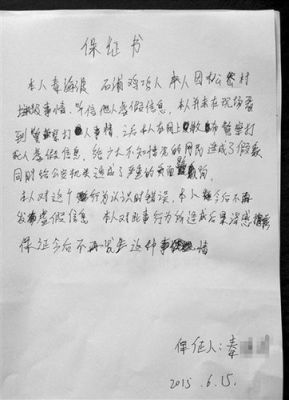 保证书
本人秦海浪 石浦鸡功人 本人因松岙村
事情，听信他人虚假信息，本人并未在现场看
到警察打人事情，之后本人在网上散布警察打
死人虚假信息，给广大不知情况的网民造成了假象
同时给公安机关造成了严重的负面
本人对这个行为认识的错误，本人今后不再
发布虚假信息 本人对此事行为所造成后果深感
保证今后不再发生这种事情
保证人：秦
2015.6.15.